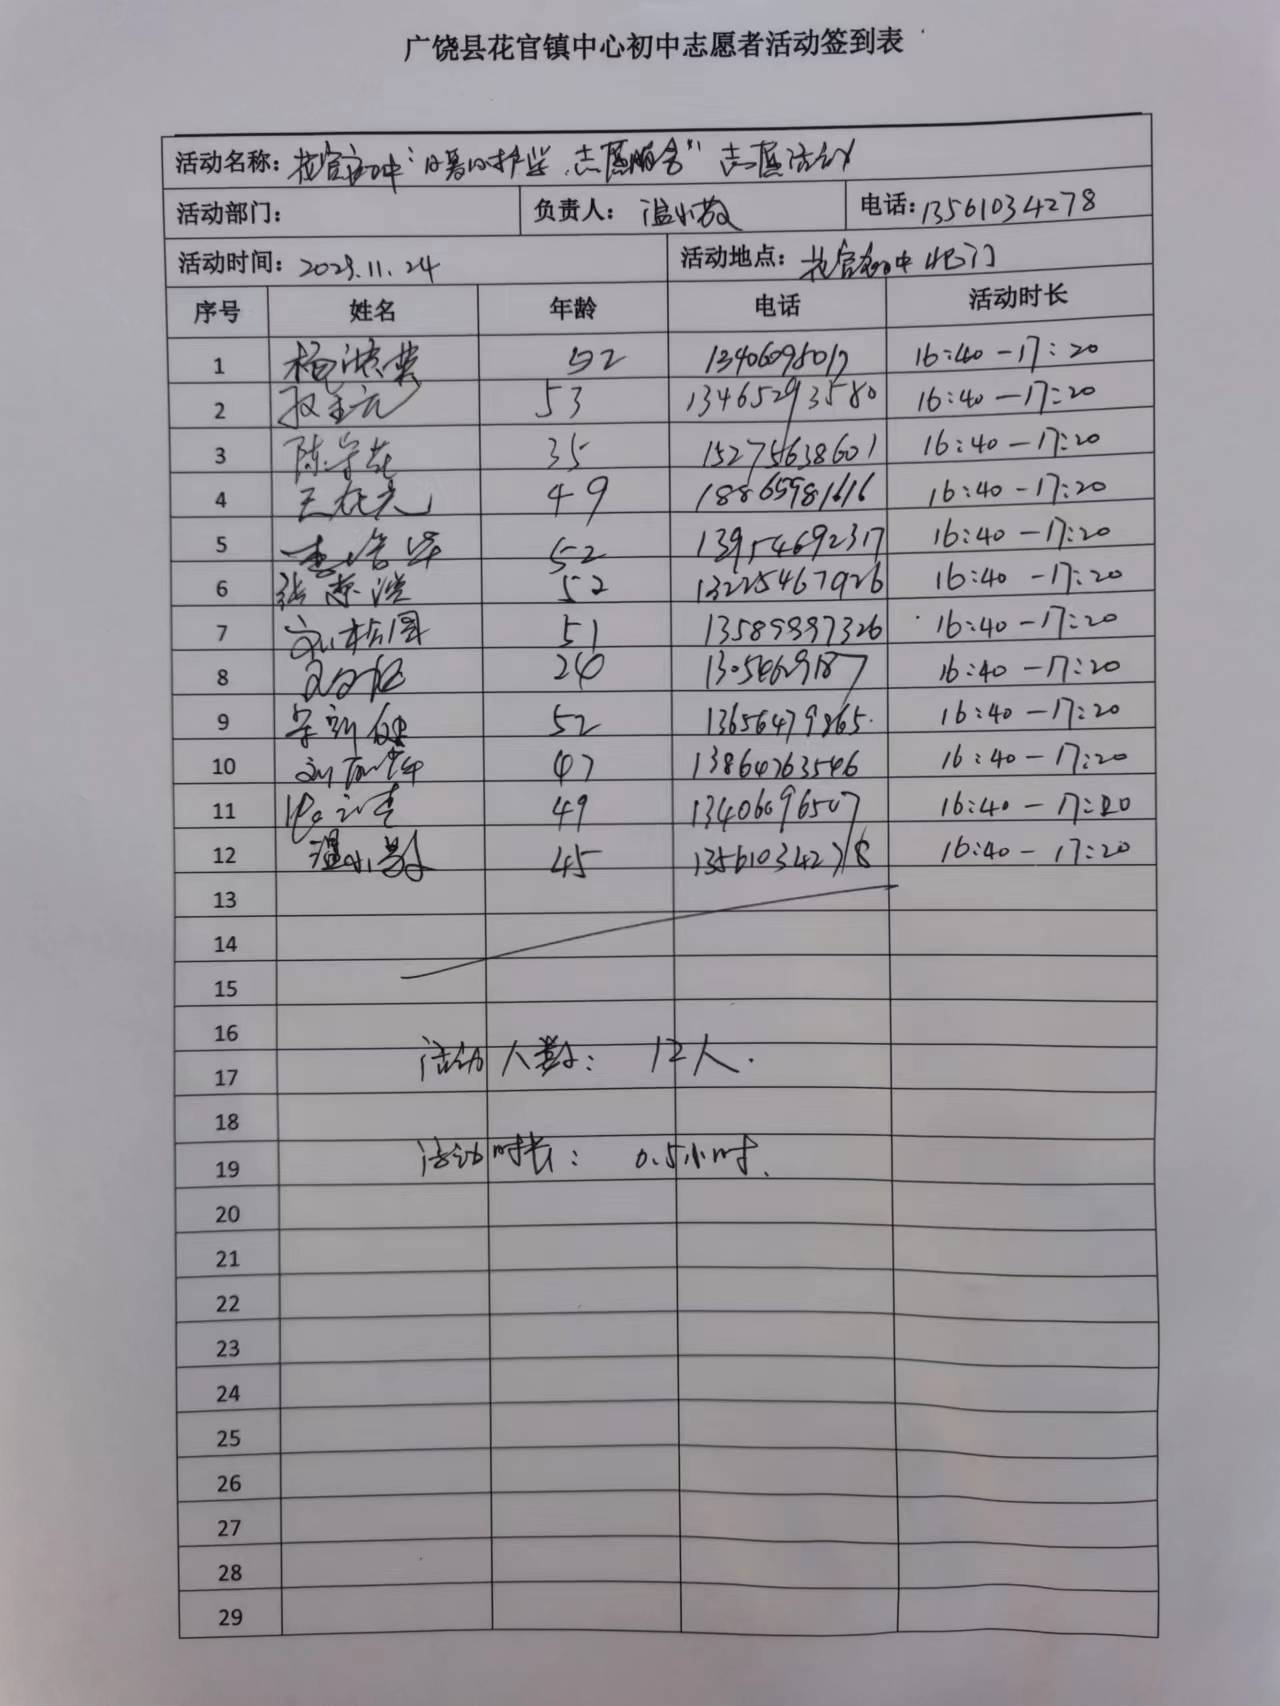 广饶县花官镇中心初中志愿者活动签到表
活动名称：花官初中"日暑心护学，志愿服务"志愿活动
活动部门： 负责人：温小教 电话：13561034278
活动时间：2023.11.24 活动地点：花官初中北门
序号 姓名 年龄 电话 活动时长
1 杨洪云 52 16:40-17:20
2 53 13465293580 16:40-17:20
3 陈守花 35 15275638601 16:40-17:20
4 49 18865981616 16:40-17:20
5 52 13954692317 16:40-17:20
6 52 13225467926 16:40-17:20
7 刘松国 51 13589997326 16:40-17:20
8 16:40-17:20
9 52 13656479865 16:40-17:20
10 47 13864763546 16:40-17:20
11 49 13406696507 16:40-17:20
12 45 13561034278 16:40-17:20
13
14
15
16
活动人数：12人.
17
18
19 活动时长：0.5小时.
20
21
22
23
24
25
26
27
28
29